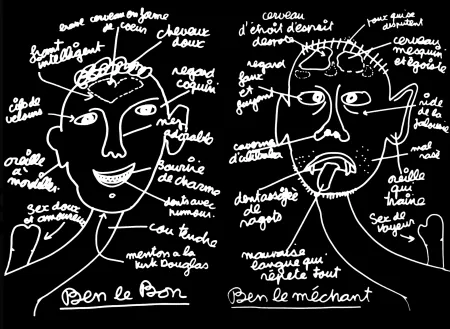 enorme cerveau en forme
de coeur
cheveux
doux
front
intelligent
regard
coquin
cils de
velours
nez
adorable
oreille
à mordiller
sourire
de charme
dents avec
humour
Sex doux
et amoureux
cou tendre
menton a la
Kirk Douglas
Ben le Bon
cerveau
d'étroit d'esprit
poux qui se
disputent
cerveau
mesquin
et égoïste
regard
faux
et
fuyant
ride
de la
jalousie
caverne
d'alibaba
mal
rasé
oreille
qui
traine
dent
de
ragots
Sex de
voyeur
mauvaise
langue qui
répète tout
Ben le méchant